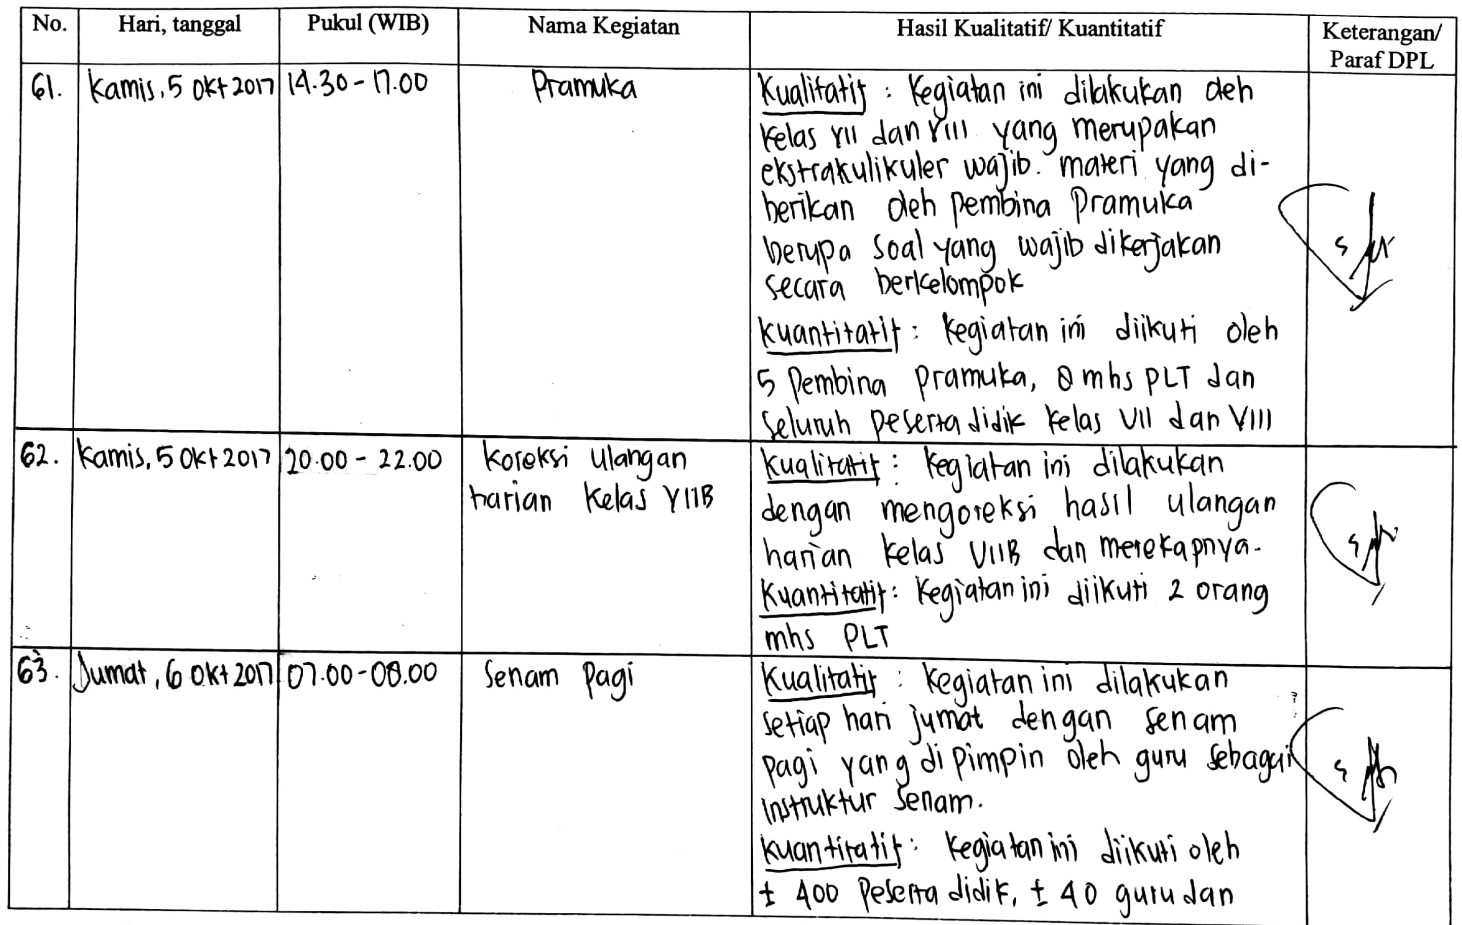 No. Hari, tanggal Pukul (WIB) Nama Kegiatan Hasil Kualitatif/ Kuantitatif Keterangan/
Paraf DPL
61. Kamis, 5 Okt 2017 14.30 - 17.00 Pramuka Kualitatif : Kegiatan ini dilakukan oleh
kelas VII dan VIII yang merupakan
ekstrakulikuler wajib. materi yang di-
berikan oleh pembina Pramuka
berupa soal yang wajib dikerjakan
secara berkelompok
Kuantitatif : kegiatan ini diikuti oleh
5 Pembina pramuka, 8 mhs PLT dan
seluruh peserta didik kelas VII dan VIII
62. Kamis, 5 Okt 2017 20.00 - 22.00 Koreksi ulangan Kualitatif : kegiatan ini dilakukan
harian kelas VIIB dengan mengoreksi hasil ulangan
harian kelas VIIB dan merekapnya.
Kuantitatif : Kegiatan ini diikuti 2 orang
mhs PLT
63. Jumat, 6 Okt 2017 07.00 - 08.00 Senam Pagi Kualitatif : kegiatan ini dilakukan
setiap hari jumat dengan senam
pagi yang dipimpin oleh guru sebagai
instruktur senam.
Kuantitatif : kegiatan ini diikuti oleh
± 400 peserta didik, ± 40 guru dan